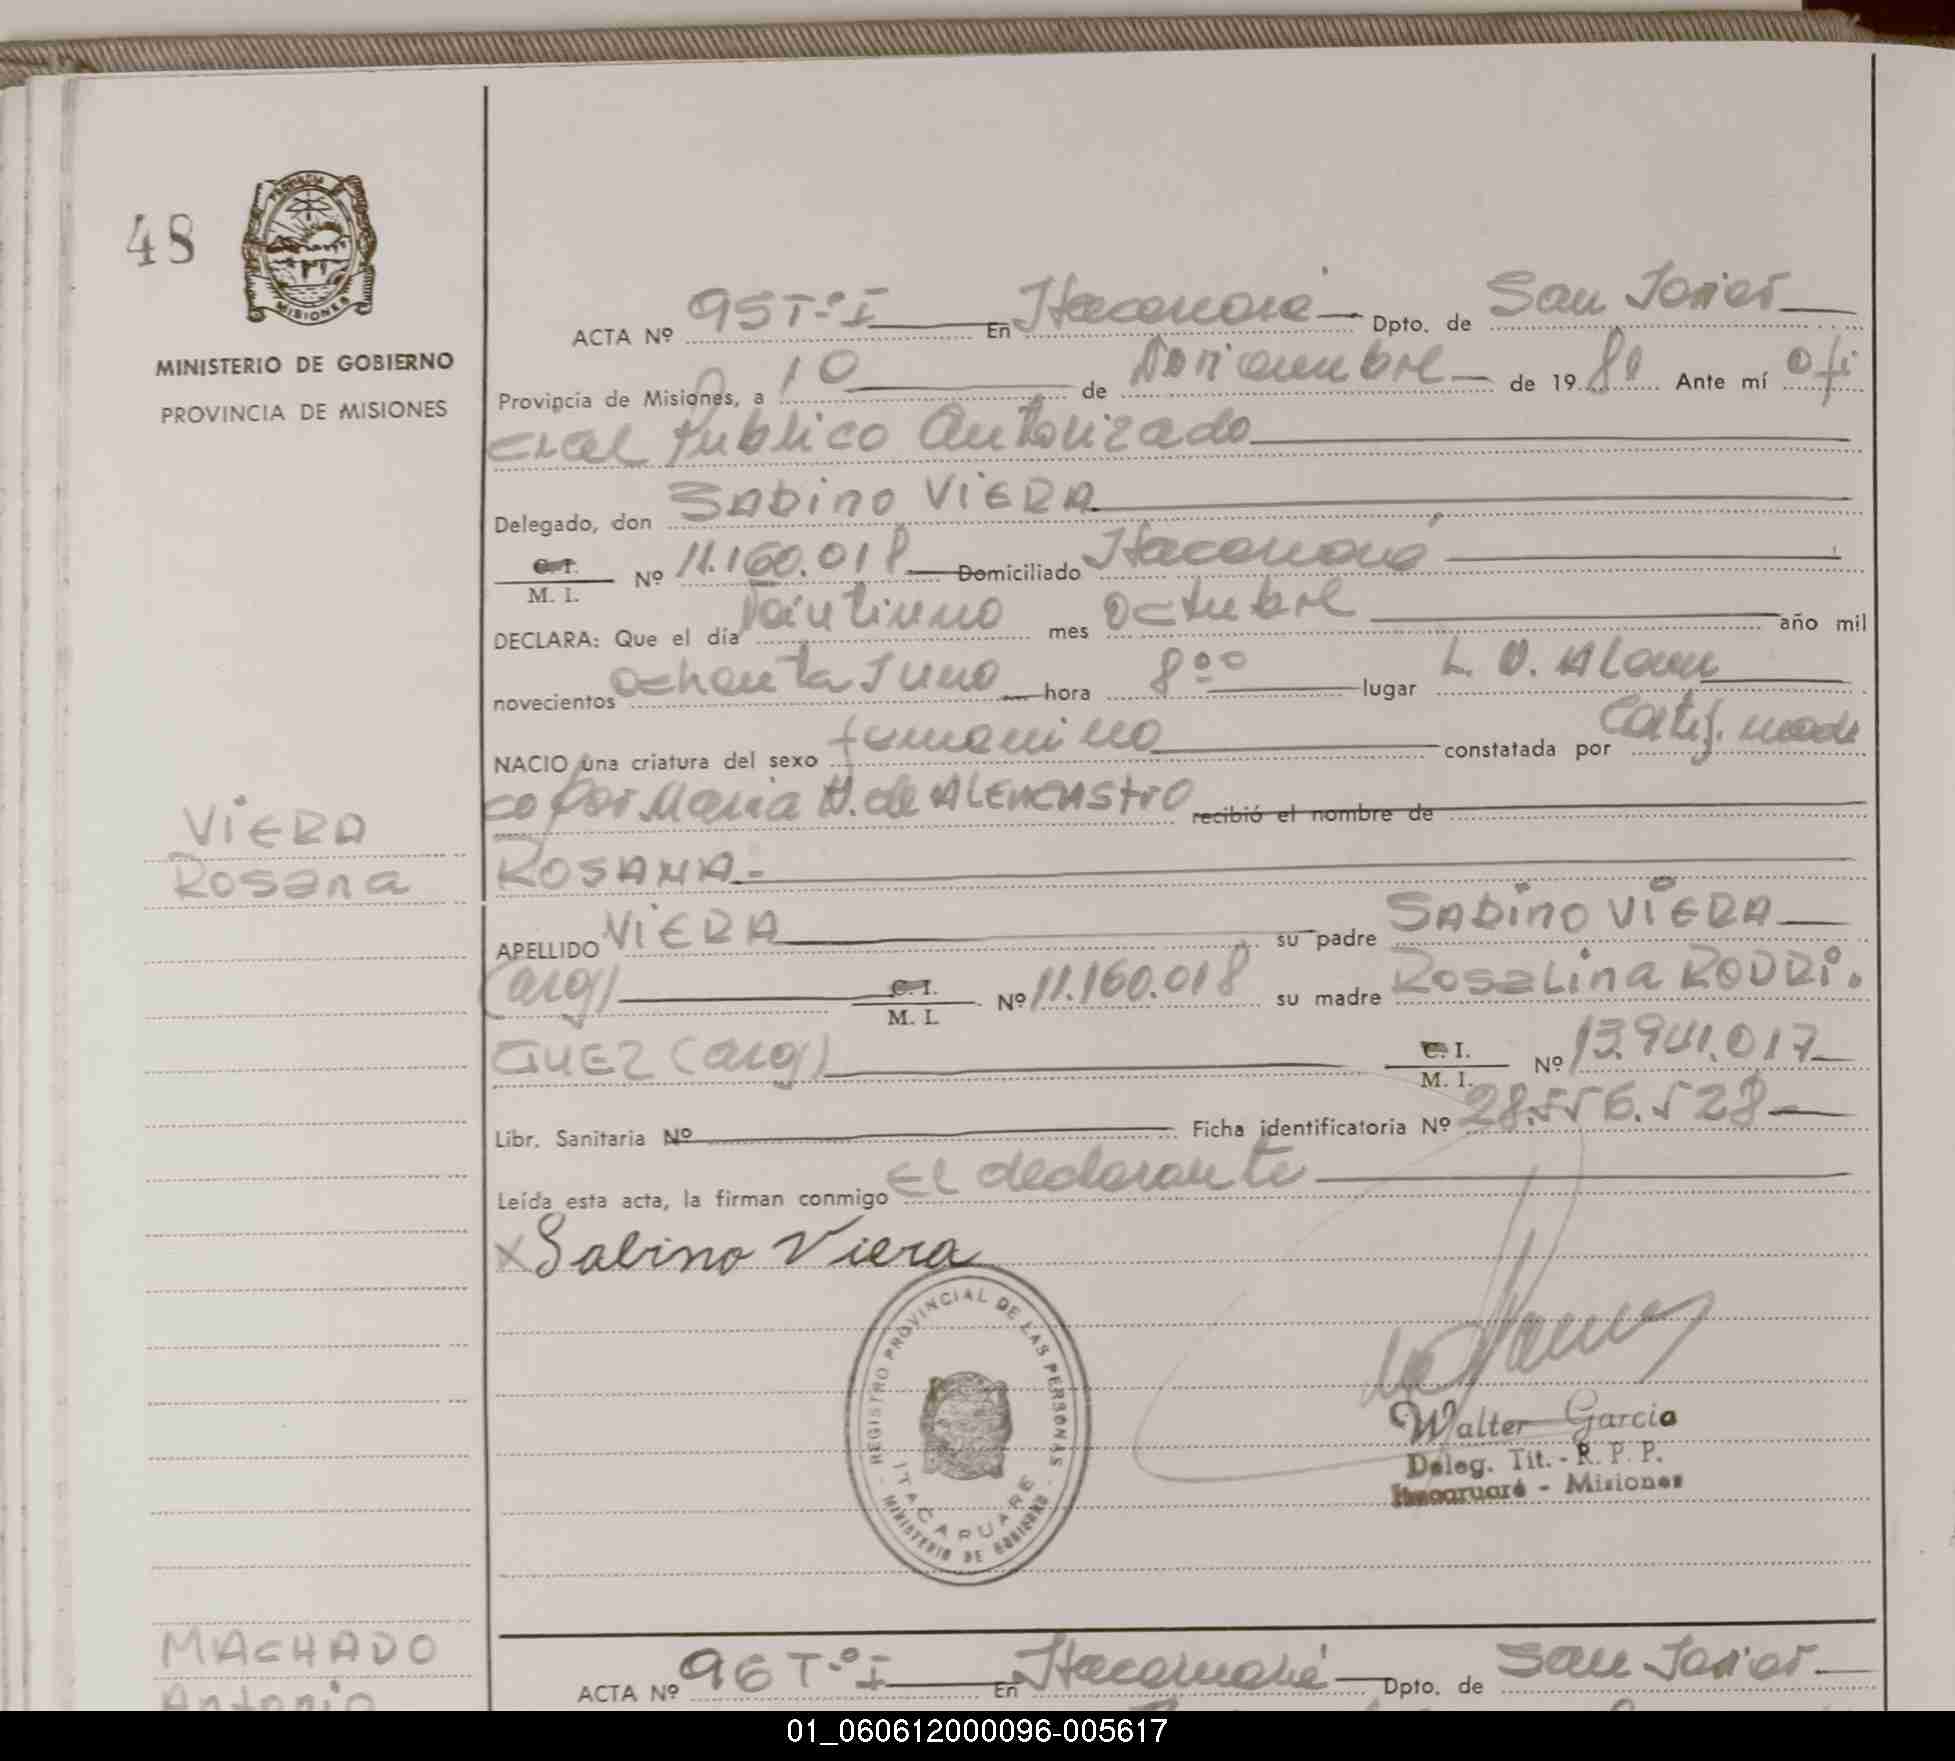 48
PROVINCIA
MISIONES
MINISTERIO DE GOBIERNO
PROVINCIA DE MISIONES
ACTA Nº 95 T-º I En Itacaruaré Dpto. de San Javier
Provincia de Misiones, a 10 de Noviembre de 19 81 Ante mí ofi
cial Público Autorizado
Delegado, don SABINO VIERA
C. I.
M. I. Nº 11.160.018 Domiciliado Itacaruaré
DECLARA: Que el día Veintiuno mes octubre año mil
novecientos ochenta y uno hora 8ºº lugar L. N. Alem
NACIO una criatura del sexo femenino constatada por Certif. medi
co por Maria H. de ALENCASTRO recibió el nombre de
VIERA
Rosana
ROSANA-
APELLIDO VIERA su padre SABINO VIERA
(arg) C. I.
M. I. Nº 11.160.018 su madre Rosalina RODRI.
GUEZ (arg) C. I.
M. I. Nº 13.941.017
Libr. Sanitaria Nº Ficha identificatoria Nº 28.556.528
Leída esta acta, la firman conmigo El declarante
x Sabino Viera
REGISTRO PROVINCIAL DE LAS PERSONAS
ITACARUARE
MINISTERIO DE GOBIERNO
Walter Garcia
Deleg. Tit. - R. P. P.
Itacaruaré - Misiones
MACHADO
Antonio
ACTA Nº 96 T-º I En Itacaruaré Dpto. de San Javier
01_060612000096-005617